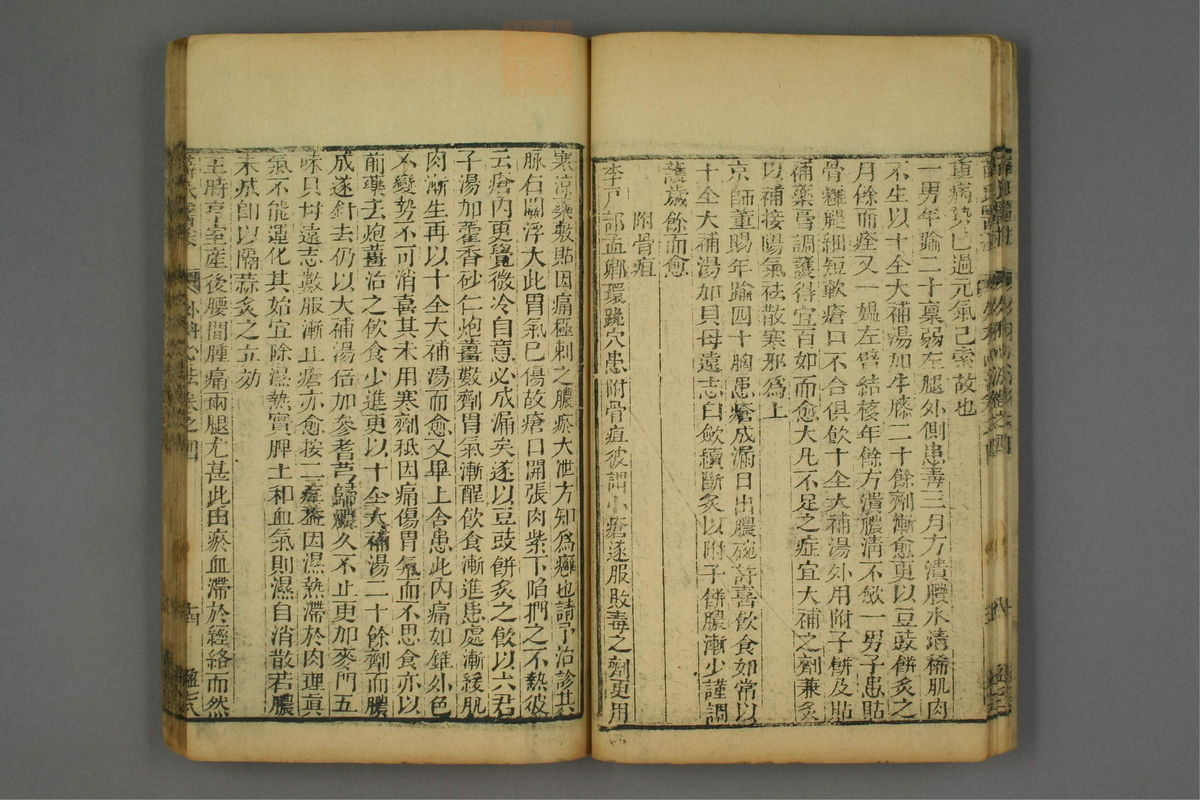 直病勢已過元氣已索故也
一男年踰二十禀弱左腿外側患毒三月方潰膿水清稀肌肉
不生以十全大補湯加牛膝二十餘劑漸愈更以豆豉餅灸之
月餘而痊又一媼左臂結核年餘方潰膿清不歛一男子患貼
骨癰腿細短軟瘡口不合俱飲十全大補湯外用附子餅及貼
補藥膏調護得宜百如而愈大凡不足之症宜大補之劑兼灸
以補接陽氣祛散寒邪爲上
京師董賜年踰四十胸患瘡成漏日出膿碗許喜飲食如常以
十全大補湯加貝母遠志白斂續斷灸以附子餅膿漸少謹調
護歲餘而愈
附骨疽
李户部孟卿環跳穴患附骨疽彼謂小瘡遂服敗毒之劑更用
寒凉藥敷貼因痛極刺之膿瘀大泄方知爲癰也請予治診其
脉右關浮大此胃氣已傷故瘡口開張肉紫下陷捫之不熱彼
云瘡内更覺微冷自意必成漏矣遂以豆豉餅灸之飲以六君
子湯加藿香砂仁炮薑數劑胃氣漸醒飲食漸進患處漸緩肌
肉漸生再以十全大補湯而愈又畢上舍患此内痛如錐外色
不變勢不可消喜其未用寒劑秪因痛傷胃氣而不思食亦以
前藥去炮薑治之飲食少進更以十全大補湯二十餘劑而膿
成遂針去仍以大補湯倍加參耆芎歸膿久不止更加麥門五
味貝母遠志數服漸止瘡亦愈按二症蓋因濕熱滯於肉理眞
氣不能運化其始宜除濕熱實脾土和血氣則濕自消散若膿
未成即以隔蒜灸之立効
王時亨室産後腰間腫痛兩腿尤甚此由瘀血滯於經絡而然
外科心法卷之四